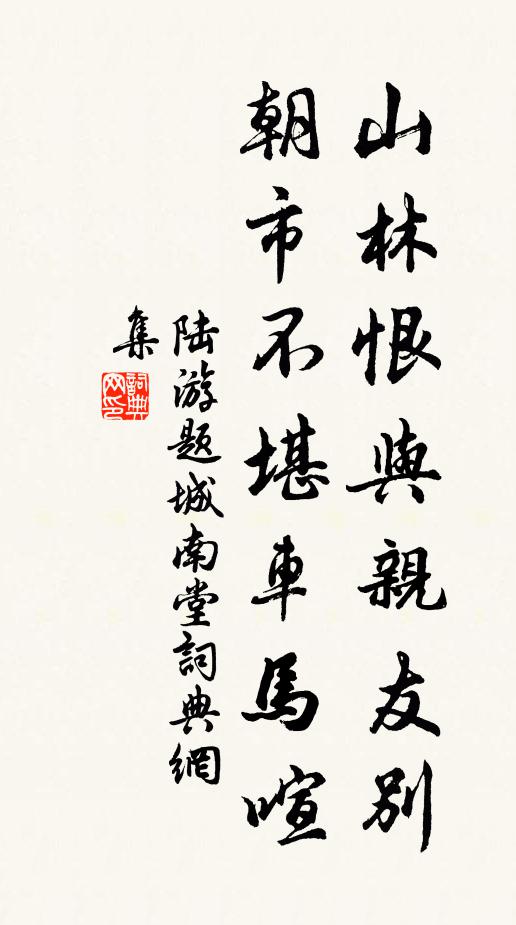 山林恨與親友別
朝市不堪車馬喧
陆游题城南堂詞典網
集
詞典
网印